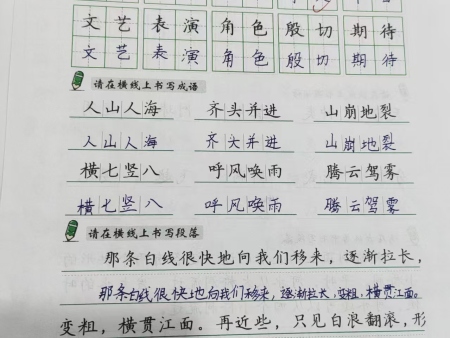 文艺 表演 角色 殷切 期待
文艺 表演 角色 殷切 期待
请在横线上书写成语
人山人海 齐头并进 山崩地裂
人山人海 齐头并进 山崩地裂
横七竖八 呼风唤雨 腾云驾雾
横七竖八 呼风唤雨 腾云驾雾
请在横线上书写段落
那条白线很快地向我们移来，逐渐拉长，
那条白线很快地向我们移来，逐渐拉长，变粗，横贯江面。
变粗，横贯江面。再近些，只见白浪翻滚，形